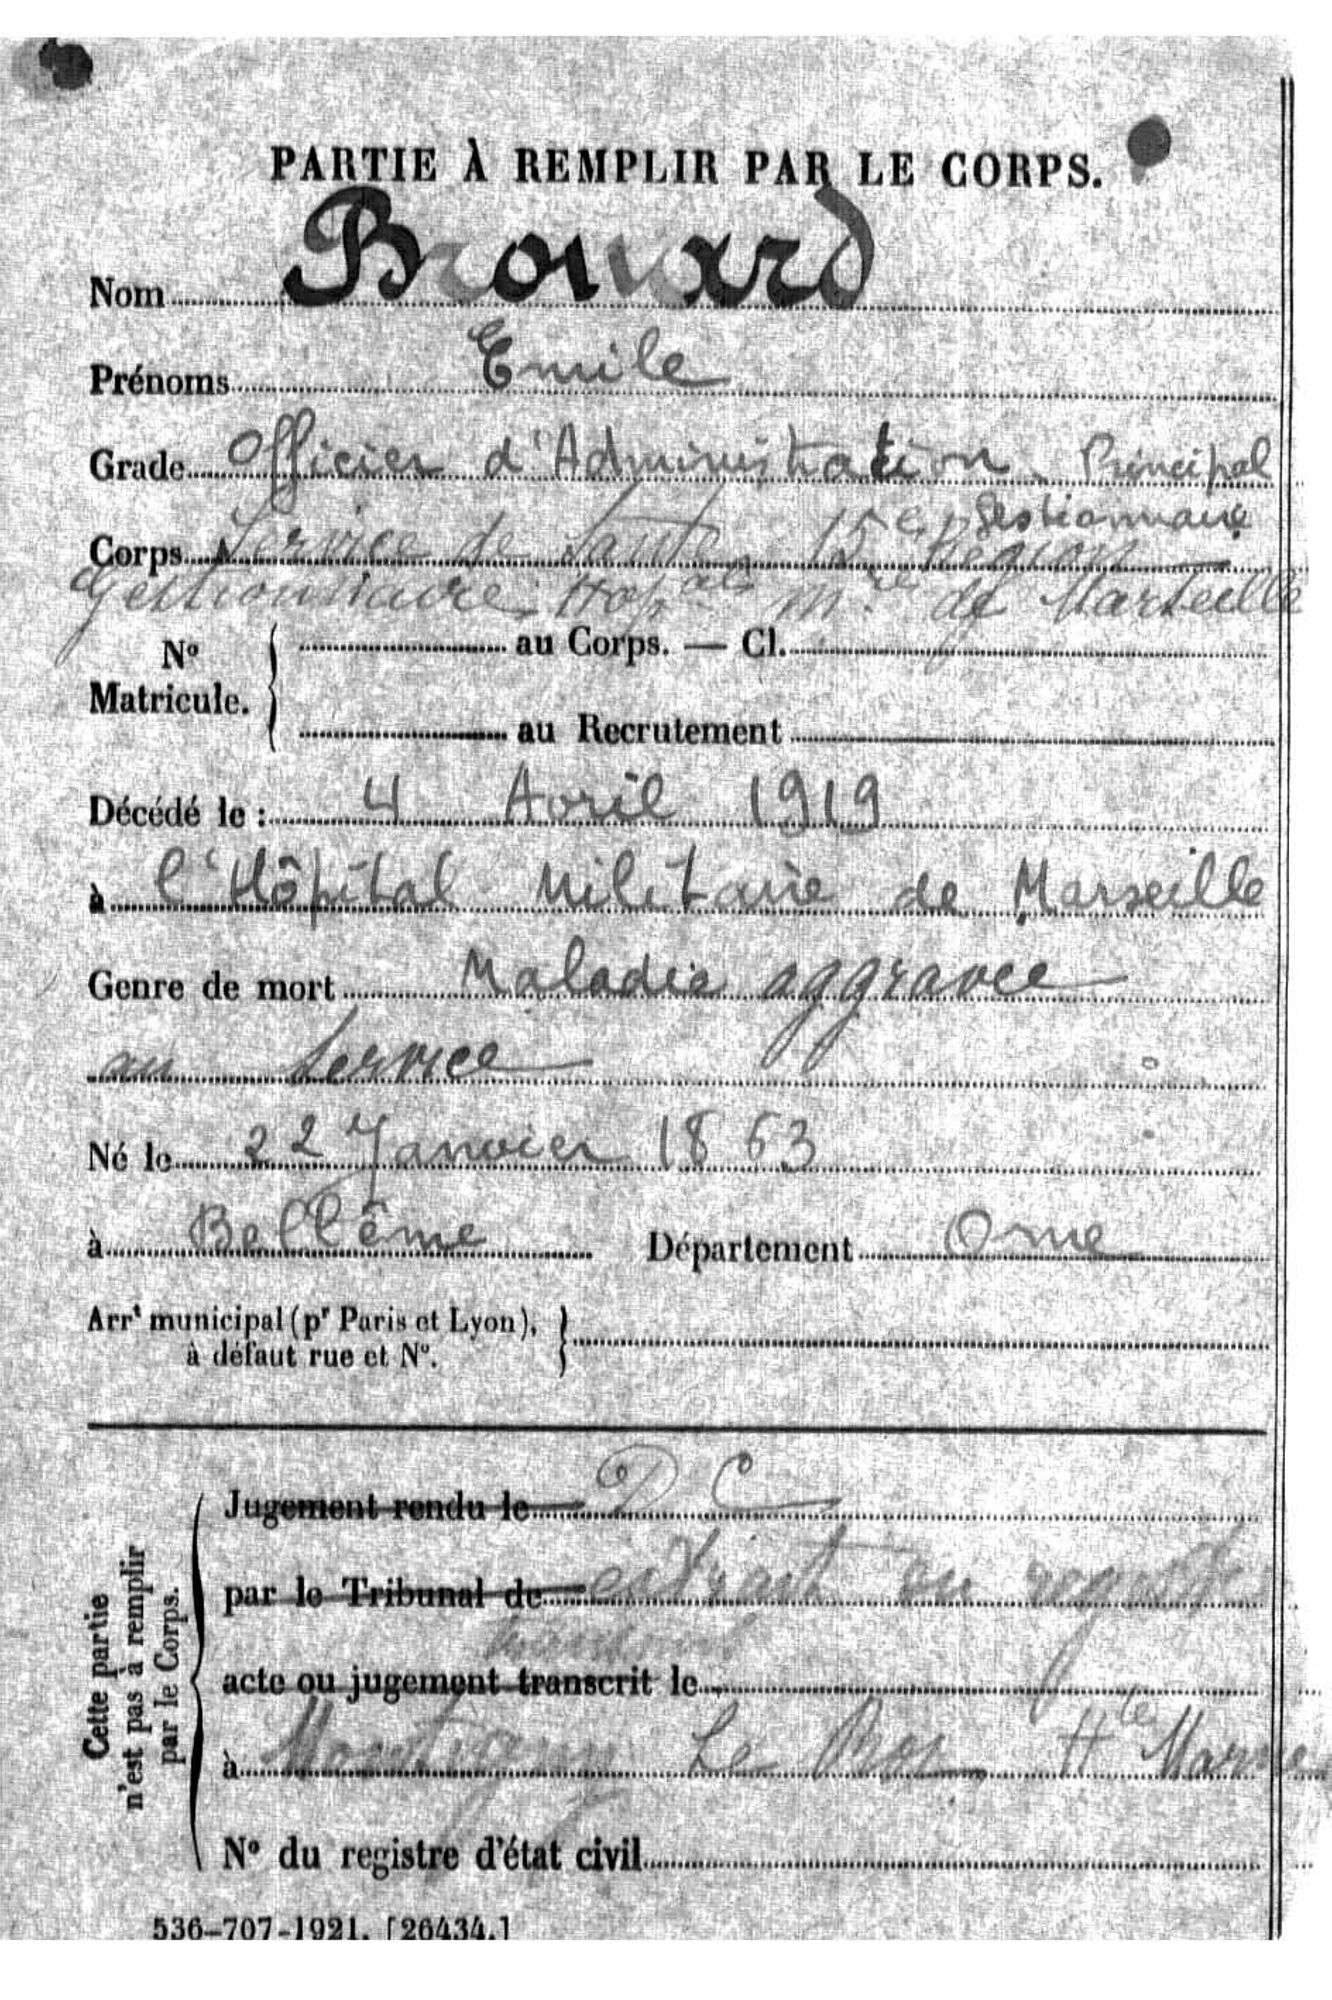 PARTIE À REMPLIR PAR LE CORPS.
Nom Brouard
Prénoms Emile
Grade Officier d'Administration Principal
gestionnaire
Corps Service de Santé 15e Région
gestionnaire Hopal mre de Marseille
No Matricule. { au Corps. — Cl.
au Recrutement
Décédé le : 4 Avril 1919
à l'Hôpital Militaire de Marseille
Genre de mort Maladie aggravée
au Service
Né le 22 Janvier 1863
à Bellême Département Orne
Arrt municipal (pr Paris et Lyon),
à défaut rue et No.
Cette partie
n'est pas à remplir
par le Corps.
Jugement rendu le D C
par le Tribunal de extrait du
acte ou jugement transcrit le
à Montigny Le Roi Hte Marne
No du registre d'état civil
536-707-1921. [26434.]